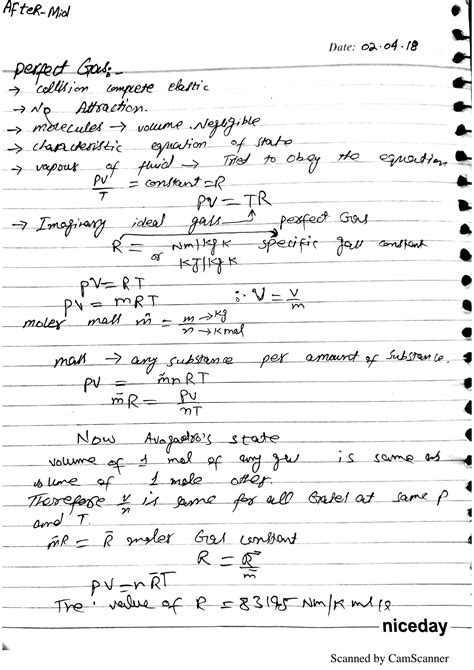 AfteR-Mid
Date: 02-04-18
perfect Gas:-
→ collision compete elastic
→ No Attraction.
→ molecules → volume Neglegible
→ characteristic equation of state
→ vapous of fluid → Tried to obey the equation
PV/T = constant = R
PV = TR
→ Imaginary ideal gass → perfect Gas
R = Nm/Kg K specific gass constant
or KJ/Kg K
pV = RT
PV = mRT ∴ V = V/m
moler mass m̃ = m → Kg / n → K mol
mass → any substance per amount of substance.
PV = m̃nRT
m̃R = PV/nT
Now Avogadro's state
volume of 1 mol of any is same as
volume of 1 mole other.
Therefore V/n is same for all Gases at same P
and T.
m̃R = R̃ moler Gas constant
R = R̃/m̃
PV = nR̃T
The value of R = 83195 Nm/K
niceday
Scanned by CamScanner